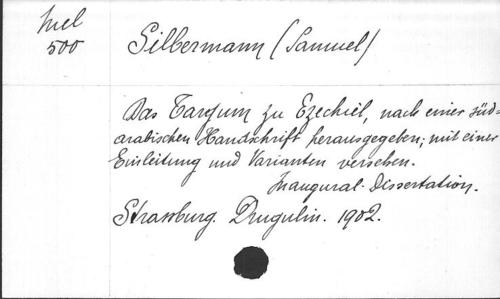 Mel
500
Silbermann (Samuel)
Das Targum zu Ezechiel, nach einer süd-
arabischen Handschrift herausgegeben, mit einer
Einleitung und Varianten versehen.
Inaugural-Dissertation.
Strassburg. Drugulin. 1902.